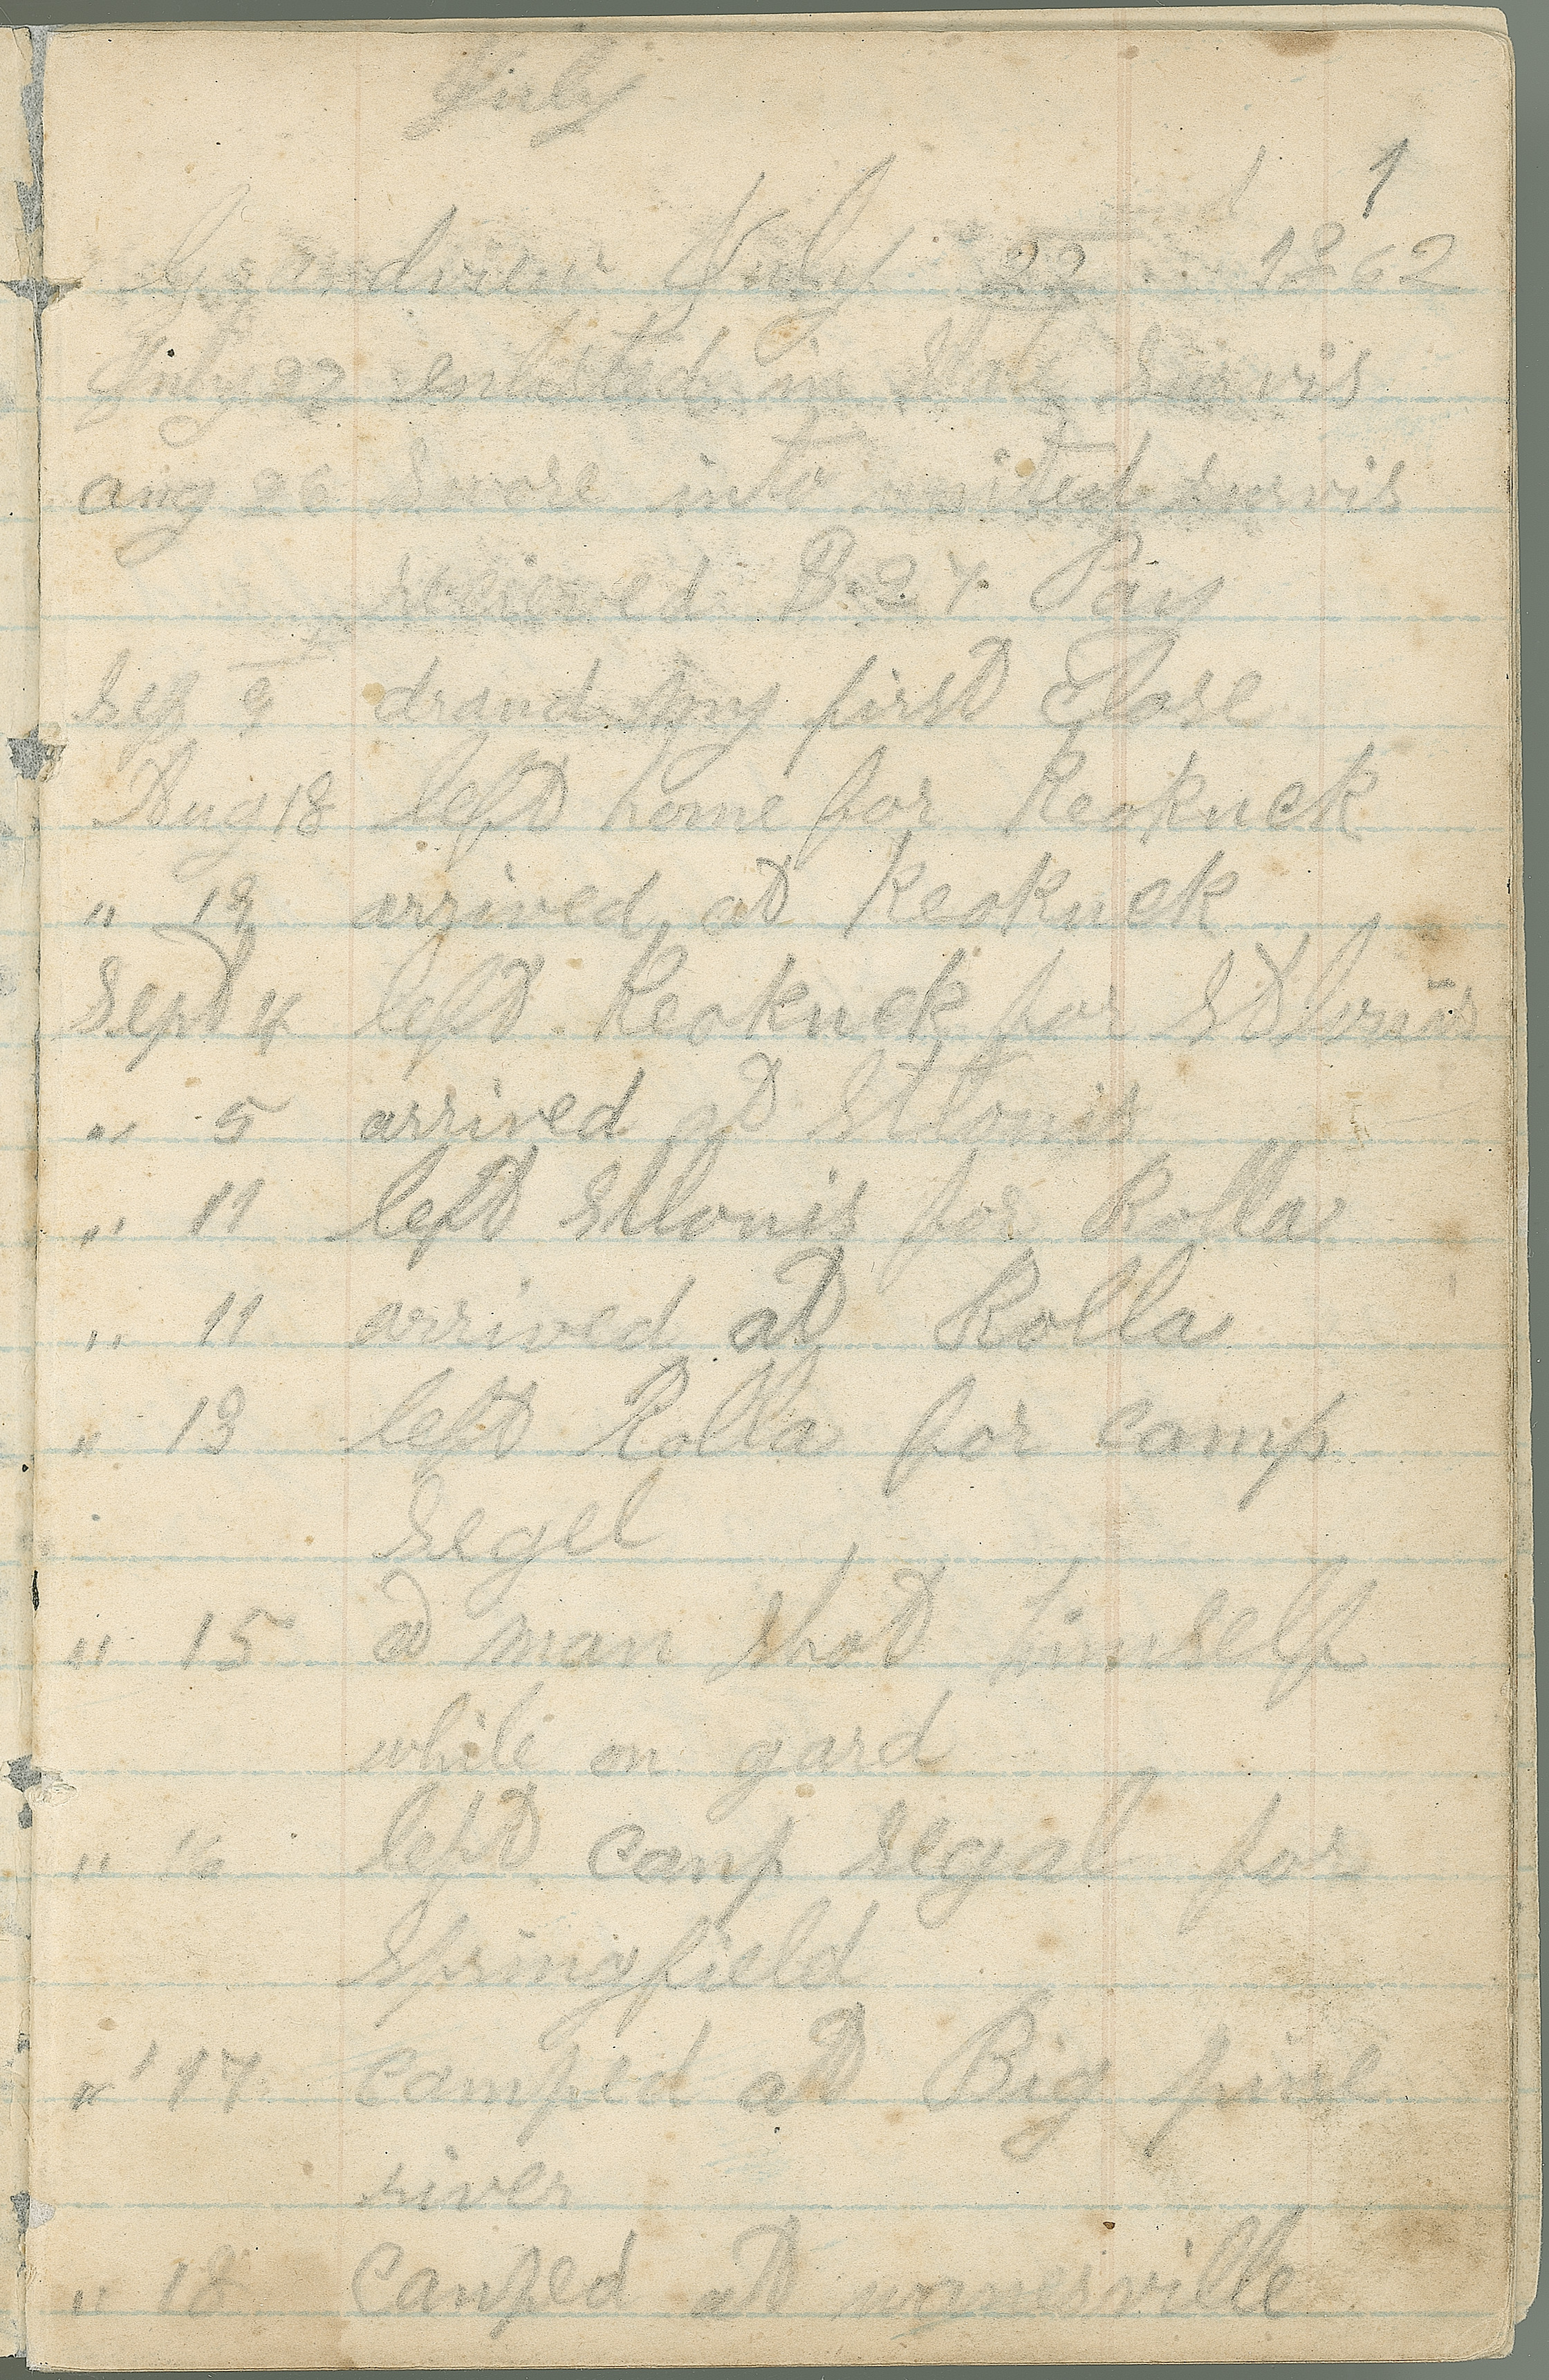 July
1
Grandview July 22 1862
July 22 enlisted in State Survis
aug 26 Swore into united survis
recieved 8.24 Pay
Sep 9 draud my first Close
Aug 18 left home for Keokuck
" 19 arrived at Keokuck
Sept 4 left Keokuck for St louis
" 5 arrived at St louis
" 11 left St louis for Rolla
" 11 arrived at Rolla
" 13 left Rolla for camp
Segel
" 15 a man shot himself
while on gard
" 16 left camp Segal for
Springfield
" 17 camped at Big pine
river
" 18 Camped at